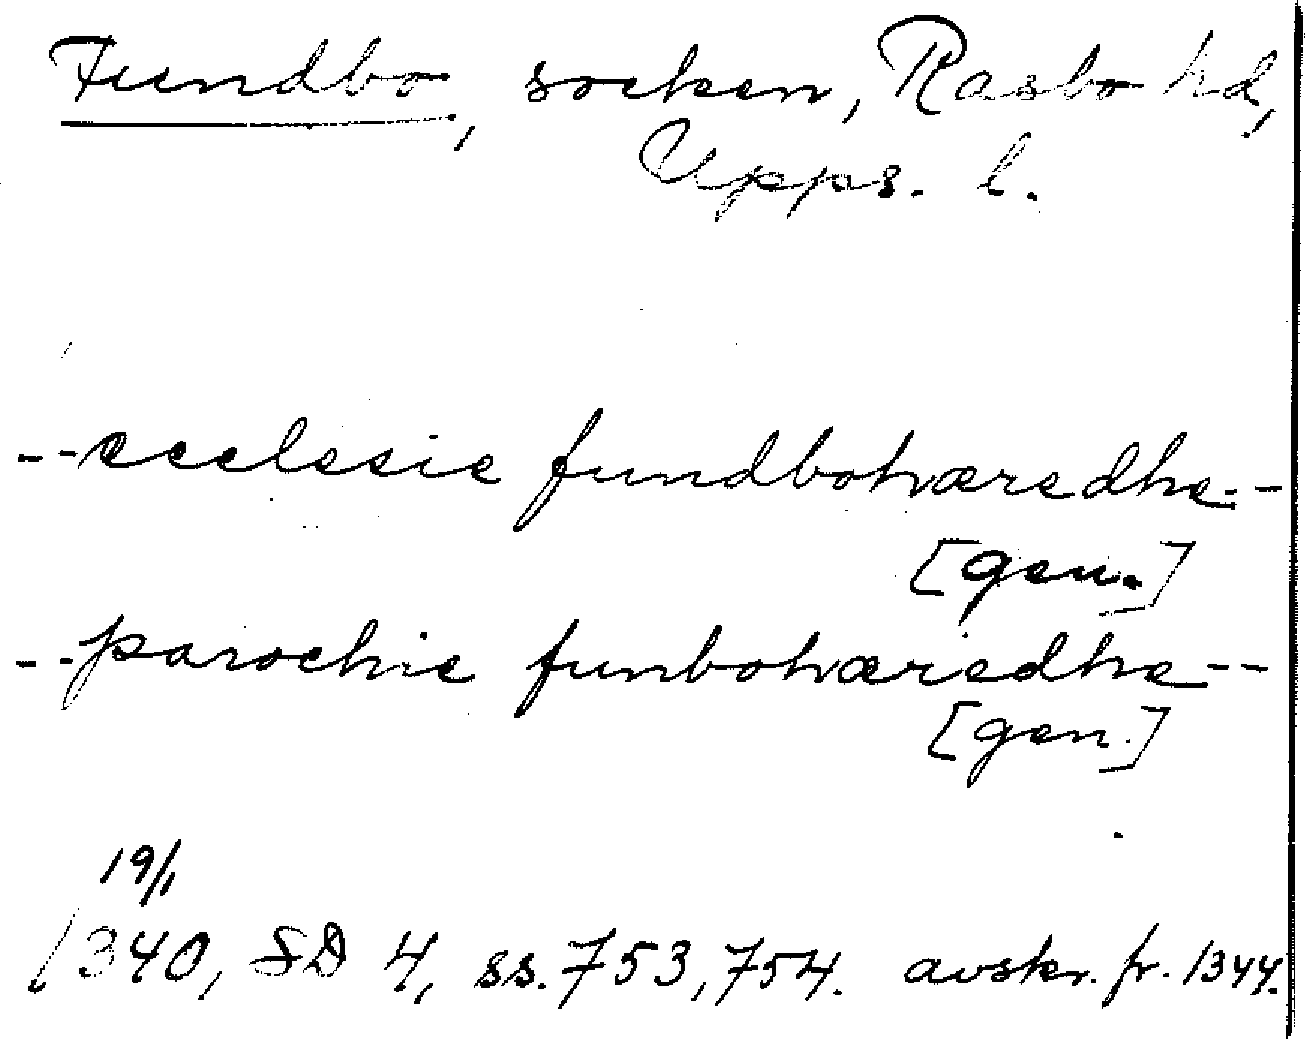 Fundbo, socken, Rasbo hd,
Upps. l.
--ecclesie fundbohæredhe--
[gen.]
--parochie funbohæredhe--
[gen.]
19/1
1340, SD 4, ss. 753, 754. avskr. fr. 1344.